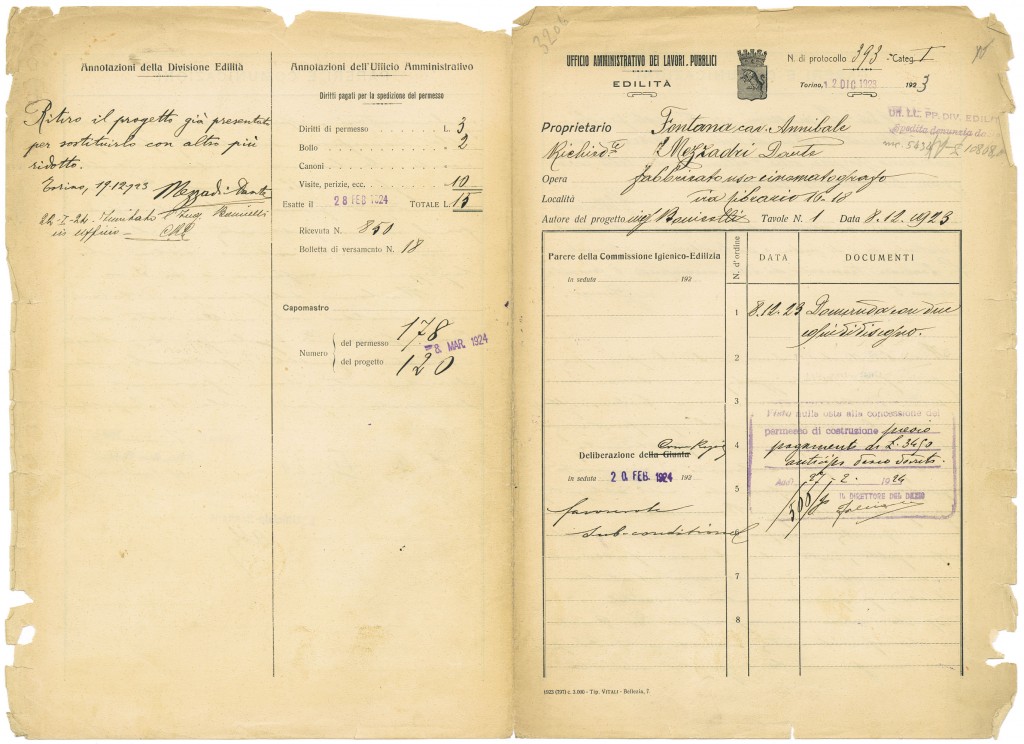 Annotazioni della Divisione Edilità
Ritiro il progetto già presentato
per sostituirlo con altro più
ridotto.
Torino, 19.12.923 Mezzadri Dante
22-I-24. Invitato l'Ing.
in ufficio
Annotazioni dell'Ufficio Amministrativo
Diritti pagati per la spedizione del permesso
Diritti di permesso L. 3
Bollo » 2
Canoni »
Visite, perizie, ecc. » 10
Esatte il 28 FEB 1924 TOTALE L. 15
Ricevuta N. 850
Bolletta di versamento N. 18
Capomastro
Numero
del permesso 178
8. MAR. 1924
del progetto 120
3206
UFFICIO AMMINISTRATIVO DEI LAVORI PUBBLICI
EDILITÀ
N. di protocollo 393 - Categ. I
Torino, 12 DIC 1923 192 3
UFF. LL. PP. DIV. EDILITÀ
Spedita denunzia dazio
Proprietario Fontana cav. Annibale
Richied.te Mezzadri Dante
Opera fabbricato uso cinematografo
Località via fibrario 16-18
Autore del progetto ing. Bonicelli Tavole N. 1 Data 8.12.1923
Parere della Commissione Igienico-Edilizia
in seduta 192
N. d'ordine
DATA
DOCUMENTI
1 8.12.23 Domanda con due
copie di disegno.
2
3
Visto nulla osta alla concessione del
permesso di costruzione previo
4 pagamento di L. 3450
anticipo dazio
Addì 27-2. 1924
IL DIRETTORE DEL DAZIO
Deliberazione della Giunta
Com Regio
in seduta 20. FEB. 1924 192
5
favorevole
sub-conditione
7
8
1923 (797) c. 3.000 - Tip. VITALI - Bellezia, 7.